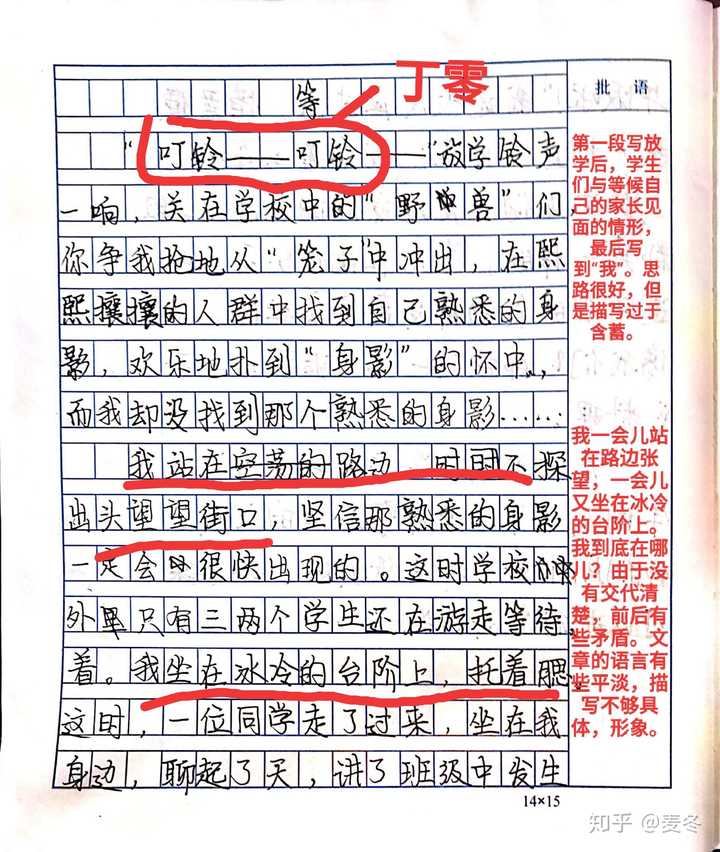 丁零
等
"叮铃——叮铃——"放学铃声
一响，关在学校中的"野兽"们，
你争我抢地从"笼子"中冲出，在熙
熙攘攘的人群中找到自己熟悉的身
影，欢乐地扑到"身影"的怀中，
而我却没找到那个熟悉的身影……
我站在空荡的路边，时时不探
出头望望街口，坚信那熟悉的身影
一定会很快出现的。这时学校
外里只有三两个学生还在游走等待
着。我坐在冰冷的台阶上，托着腮。
这时，一位同学走了过来，坐在我
身边，聊起了天，讲了班级中发生
14×15
批 语
第一段写放
学后，学生
们与等候自
己的家长见
面的情形，
最后写
到“我”。思
路很好，但
是描写过于
含蓄。
我一会儿站
在路边张
望，一会儿
又坐在冰冷
的台阶上。
我到底在哪
儿？由于没
有交代清
楚，前后有
些矛盾。文
章的语言有
些平淡，描
写不够具
体，形象。
知乎 @麦冬